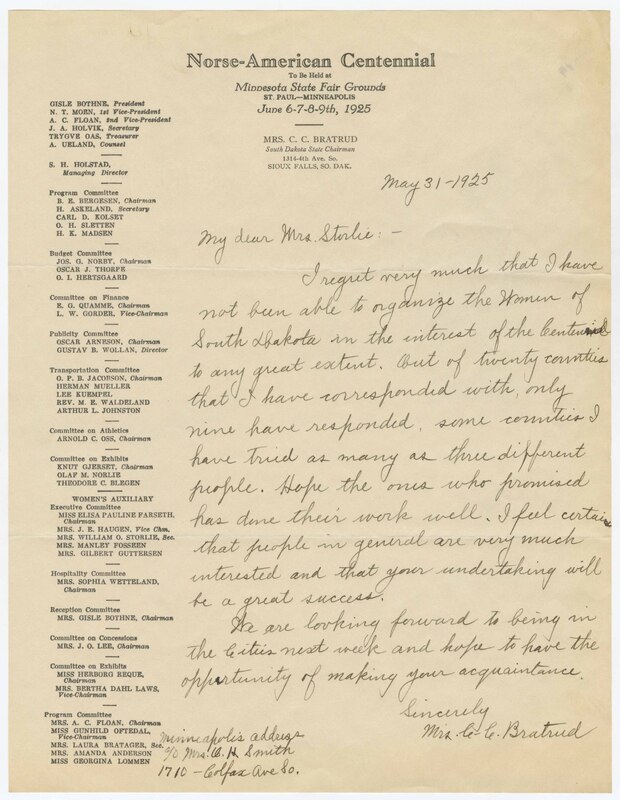 Norse-American Centennial
To Be Held at
Minnesota State Fair Grounds
ST. PAUL—MINNEAPOLIS
June 6-7-8-9th, 1925
MRS. C. C. BRATRUD
South Dakota State Chairman
1314-4th Ave. So.
SIOUX FALLS, SO. DAK.
GISLE BOTHNE, President
N. T. MOEN, 1st Vice-President
A. C. FLOAN, 2nd Vice-President
J. A. HOLVIK, Secretary
TRYGVE OAS, Treasurer
A. UELAND, Counsel
S. H. HOLSTAD,
Managing Director
Program Committee
B. E. BERGESEN, Chairman
H. ASKELAND, Secretary
CARL D. KOLSET
O. H. SLETTEN
H. K. MADSEN
Budget Committee
JOS. G. NORBY, Chairman
OSCAR J. THORPE
O. I. HERTSGAARD
Committee on Finance
E. G. QUAMME, Chairman
L. W. GORDER, Vice-Chairman
Publicity Committee
OSCAR ARNESON, Chairman
GUSTAV B. WOLLAN, Director
Transportation Committee
O. P. B. JACOBSON, Chairman
HERMAN MUELLER
LEE KUEMPEL
REV. M. E. WALDELAND
ARTHUR L. JOHNSTON
Committee on Athletics
ARNOLD C. OSS, Chairman
Committee on Exhibits
KNUT GJERSET, Chairman
OLAF M. NORLIE
THEODORE C. BLEGEN
WOMEN'S AUXILIARY
Executive Committee
MISS ELISA PAULINE FARSETH,
Chairman
MRS. J. E. HAUGEN, Vice Chm.
MRS. WILLIAM O. STORLIE, Sec.
MRS. MANLEY FOSSEEN
MRS. GILBERT GUTTERSEN
Hospitality Committee
MRS. SOPHIA WETTELAND,
Chairman
Reception Committee
MRS. GISLE BOTHNE, Chairman
Committee on Concessions
MRS. J. O. LEE, Chairman
Committee on Exhibits
MISS HERBORG REQUE,
Chairman
MRS. BERTHA DAHL LAWS,
Vice-Chairman
Program Committee
MRS. A. C. FLOAN, Chairman
MISS GUNHILD OFTEDAL,
Vice-Chairman
MRS. LAURA BRATAGER, Sec.
MRS. AMANDA ANDERSON
MISS GEORGINA LOMMEN
May 31-1925
My dear Mrs. Storlie:-
I regret very much that I have
not been able to organize the Women of
South Dakota in the interest of the Centennial
to any great extent. Out of twenty counties
that I have corresponded with, only
nine have responded, some counties I
have tried as many as three different
people. Hope the ones who promised
has done their work well. I feel certain
that people in general are very much
interested and that your undertaking will
be a great success.
We are looking forward to being in
the Cities next week and hope to have the
opportunity of making your acquaintance.
Sincerely
Mrs. C. C. Bratrud
Minneapolis address
c/o Mrs. O. H. Smith
1710 - Colfax Ave So.